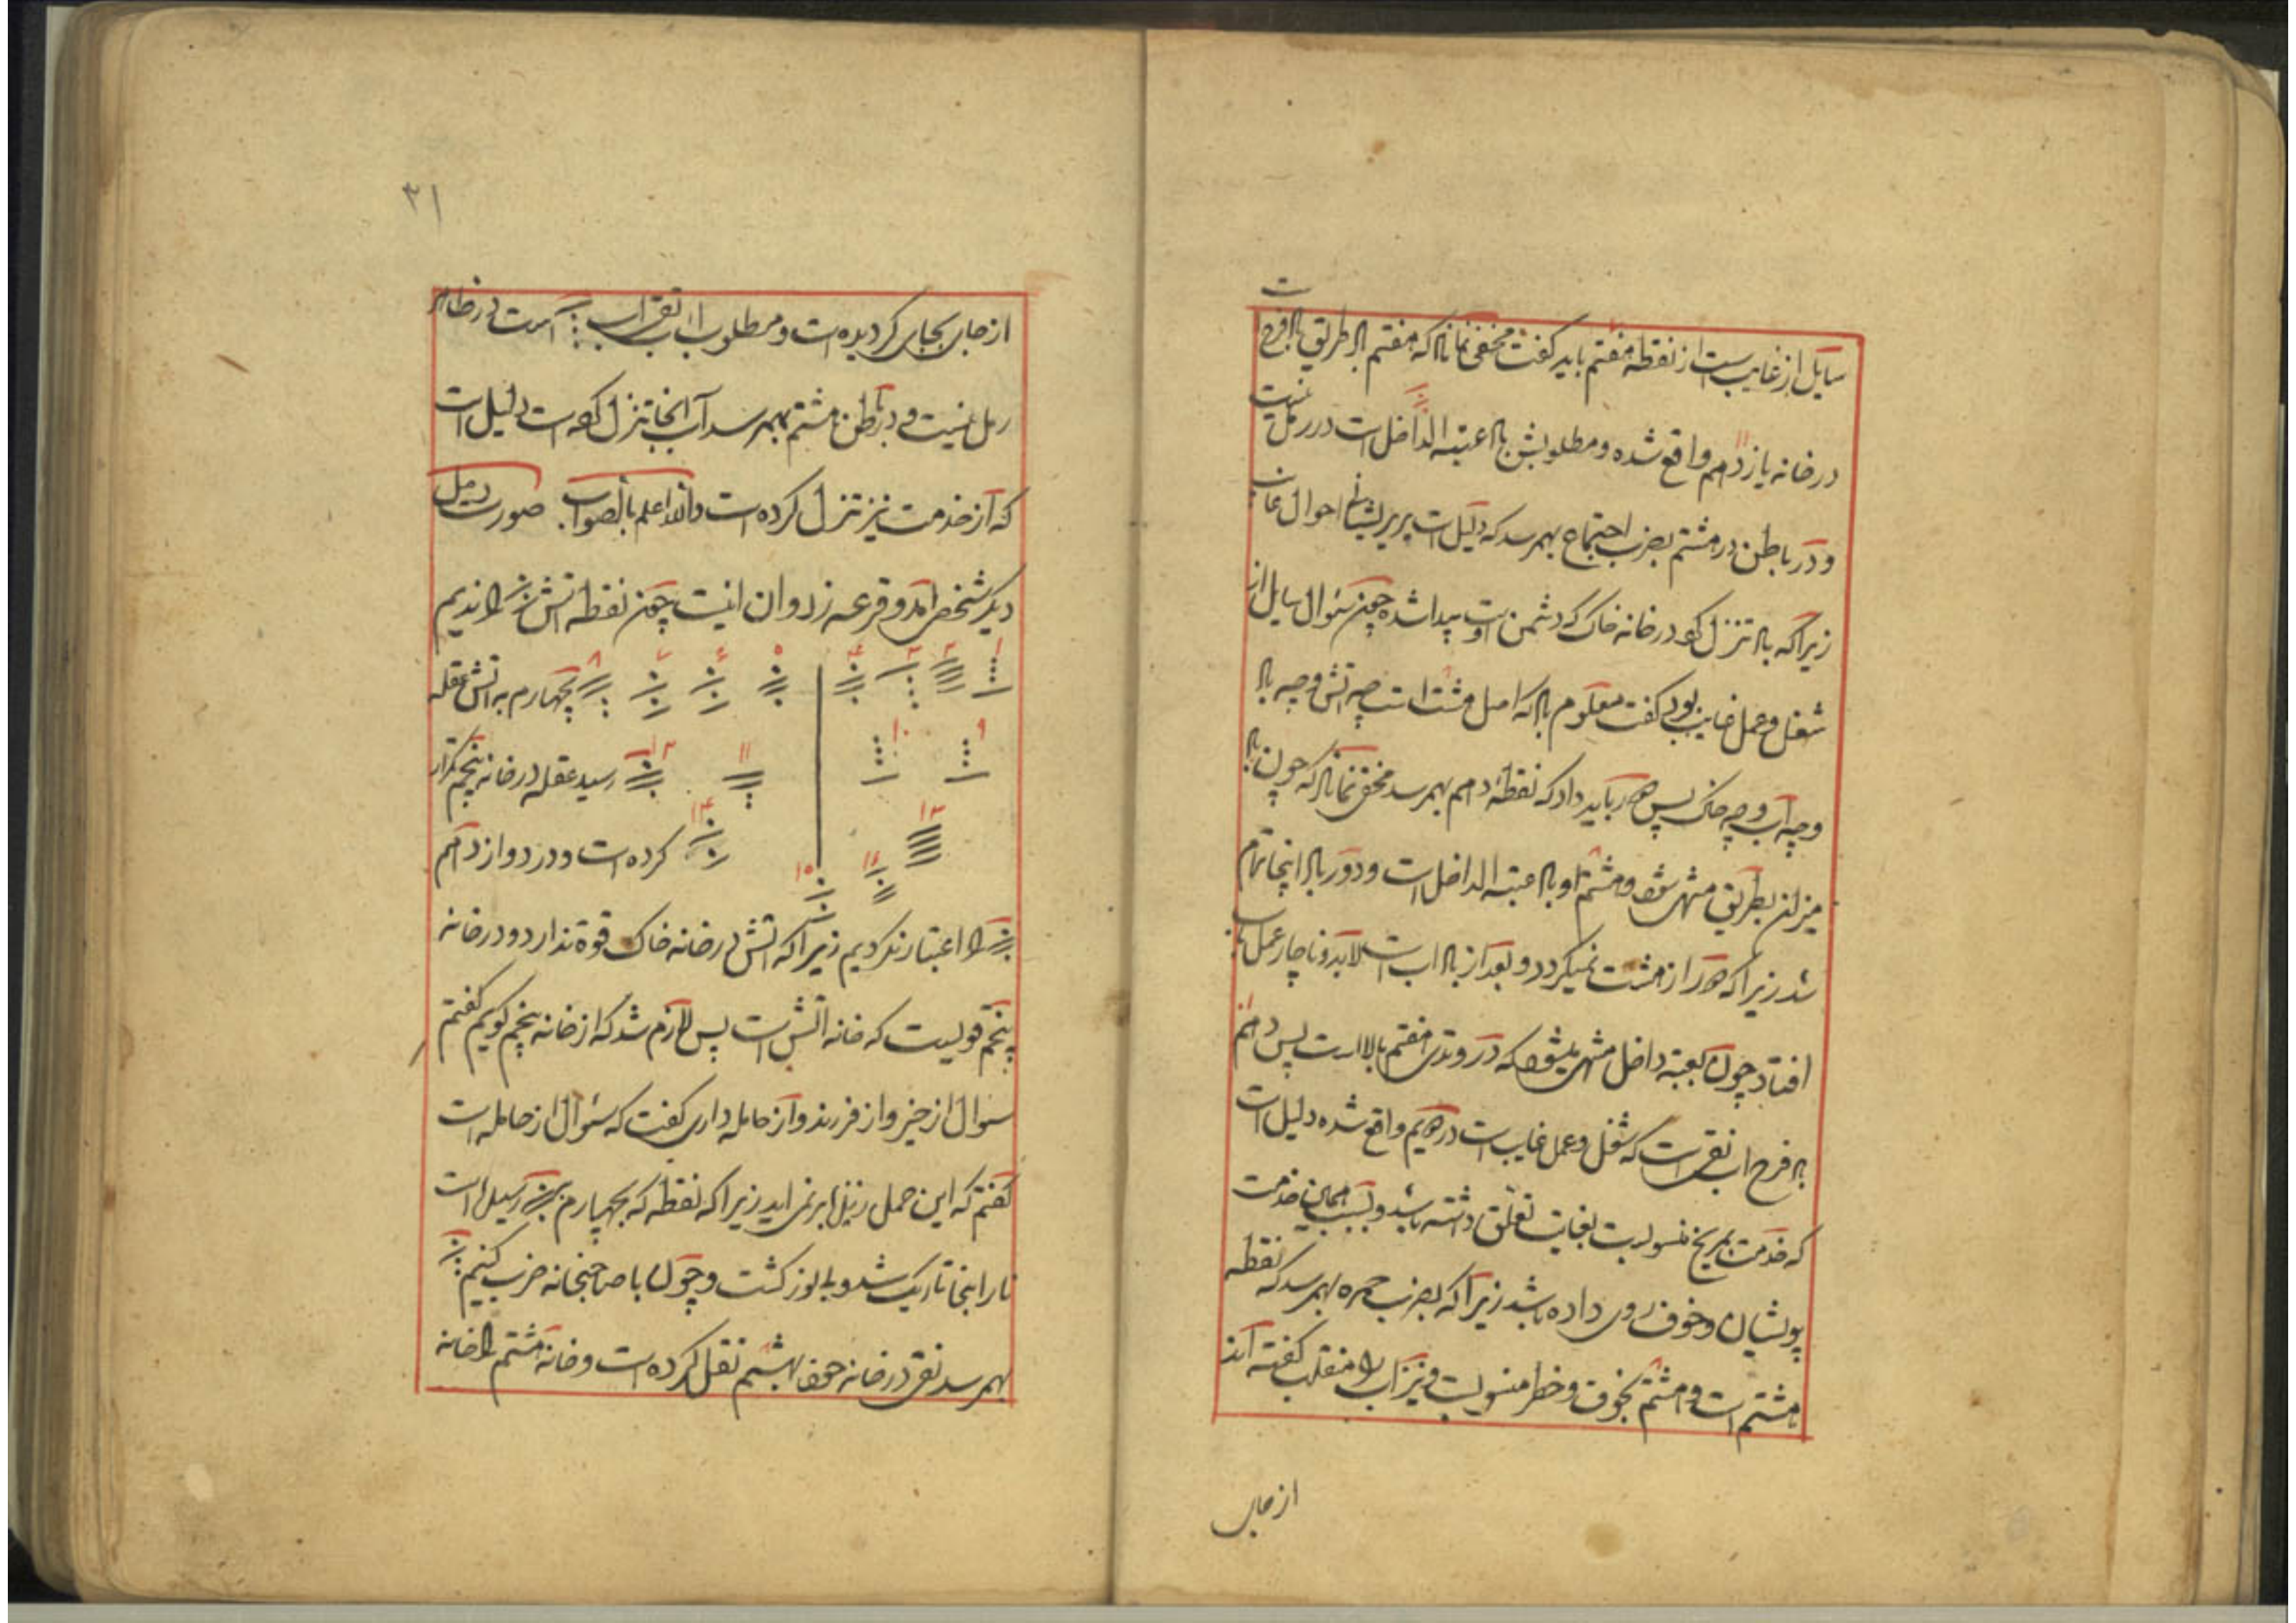 سایل از غایب است از نقطه هفتم باید گفت مخفی نماند که هفتم باد طریق باد فرح است
در خانه یازدهم واقع شده و مطلوبش باد عتبة الداخل است در رمل نیست
و در باطن در هشتم بضرب اجتماع بهمرسد که دلیل است بر پریشانی احوال غایب
زیرا که باد تنزل کرد در خانه خاک که دشمن اوست پیدا شده چون سئوال سایل از
شغل و عمل غایب بود گفت معلوم باد که اصل هشت است چه آتش و چه باد
و چه آب و چه خاک پس دور باید داد که نقطه دهم بهمرسد مخفی نماند که چون باد
میزان بطریق منتهی شود و هشتم او باد عتبة الداخل است و دور باد اینجا تمام
شد زیرا که دور از هشت نمیگردد و بعد از باد آب است لابد و ناچار عمل بآب
افتاد چون بعتبه داخل منتهی میشود که در وتدی هفتم بالا است پس دهم
باد فرح آب نقی است که شغل و عمل غایب است در دویم واقع شده دلیل است
که خدمت بمریخ منسوبست بغایت تعلق داشته باشد و بسبب همان خدمت
پریشان و خوف روی داده باشد زیرا که بضرب حمره بهمرسد که نقطه
هشتم است و هشتم بخوف و خطر منسوبست و نیز آب را منقلب گفته اند
از جای
۳۱
از جای بجای گردیده است و مطلوب آب نقی آب است در ظاهر
رمل نیست و در باطن هشتم بهمرسد آب آنجا تنزل کرده است دلیل است
که از خدمت نیز تنزل کرده است والله اعلم بالصواب صورت رمل
دیگر شخص آمد و قرعه زد و آن اینست چون نقطه آتش را راندیم
۱ ۲ ۳ ۴ ۵ ۶ ۷ ۸ بچهارم به آتش عقله
۹ ۱۰ ۱۱ ۱۲ رسید عقله در خانه پنجم تکرار
۱۳ ۱۴ کرده است و در دوازدهم
۱۵ ۱۶
را اعتبار نکردیم زیرا که آتش در خانه خاک قوة ندارد و در خانه
پنجم قویست که خانه آتش است پس لازم شد که از خانه پنجم گویم گفتم
سئوال از خبر و از فرزند و از حامله داری گفت که سئوال از حامله است
گفتم که این حمل بر نمی آید زیرا که نقطه که بچهارم رسیده است
نار اینجا تاریک شد و چون با صاحبخانه ضرب کنیم
بهمرسد نقی در خانه خوف بهشتم نقل کرده است و خانه هشتم را خانه